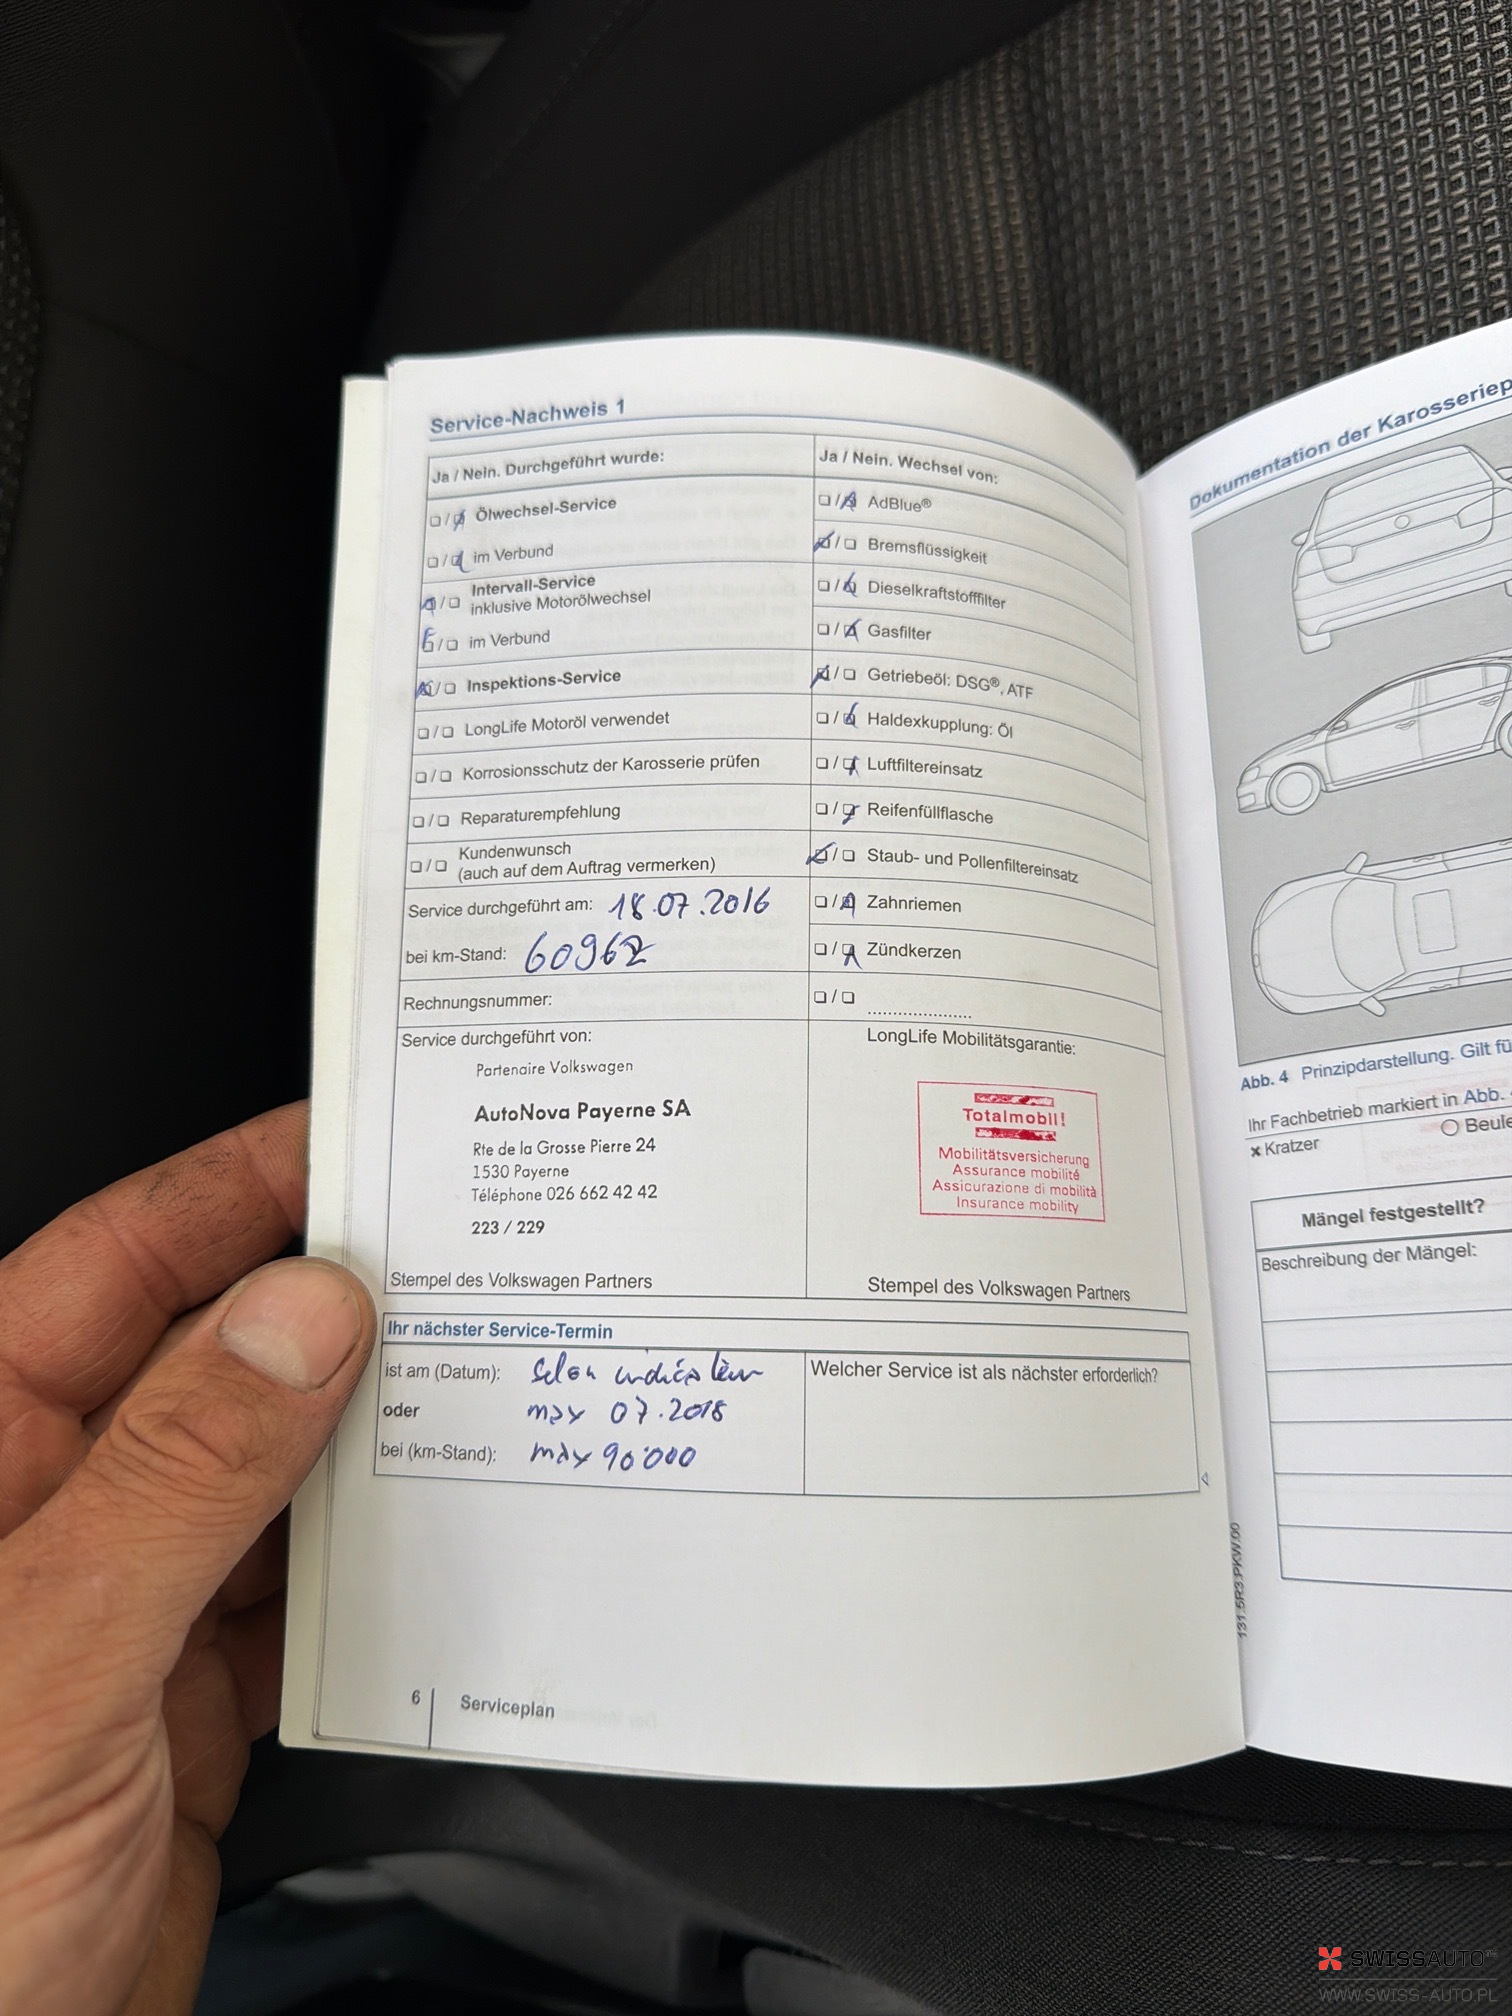 Service-Nachweis 1
Ja / Nein. Durchgeführt wurde:
❑/❑ Ölwechsel-Service
❑/❑ im Verbund
❑/❑ Intervall-Service
inklusive Motorölwechsel
❑/❑ im Verbund
❑/❑ Inspektions-Service
❑/❑ LongLife Motoröl verwendet
❑/❑ Korrosionsschutz der Karosserie prüfen
❑/❑ Reparaturempfehlung
❑/❑ Kundenwunsch
(auch auf dem Auftrag vermerken)
Service durchgeführt am: 18.07.2016
bei km-Stand: 60962
Rechnungsnummer:
Ja / Nein. Wechsel von:
❑/❑ AdBlue®
❑/❑ Bremsflüssigkeit
❑/❑ Dieselkraftstofffilter
❑/❑ Gasfilter
❑/❑ Getriebeöl: DSG®, ATF
❑/❑ Haldexkupplung: Öl
❑/❑ Luftfiltereinsatz
❑/❑ Reifenfüllflasche
❑/❑ Staub- und Pollenfiltereinsatz
❑/❑ Zahnriemen
❑/❑ Zündkerzen
❑/❑ ......................
Service durchgeführt von:
Partenaire Volkswagen
AutoNova Payerne SA
Rte de la Grosse Pierre 24
1530 Payerne
Téléphone 026 662 42 42
223 / 229
Stempel des Volkswagen Partners
LongLife Mobilitätsgarantie:
Totalmobil!
Mobilitätsversicherung
Assurance mobilité
Assicurazione di mobilità
Insurance mobility
Stempel des Volkswagen Partners
Ihr nächster Service-Termin
ist am (Datum): selon indication
oder max 07.2018
bei (km-Stand): max 90'000
Welcher Service ist als nächster erforderlich?
6 Serviceplan
Dokumentation der Karosseriep
Abb. 4 Prinzipdarstellung. Gilt fü
Ihr Fachbetrieb markiert in Abb.
× Kratzer
○ Beule
Mängel festgestellt?
Beschreibung der Mängel:
131.5R3.PKW.00
SWISSAUTO
WWW.SWISS-AUTO.PL